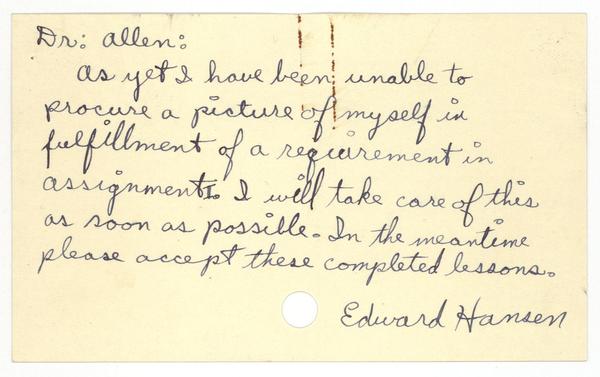 Dr: Allen:
As yet I have been unable to
procure a picture of myself in
fulfillment of a requirement in
assignment I. I will take care of this
as soon as possible. In the meantime
please accept these completed lessons.
Edward Hansen